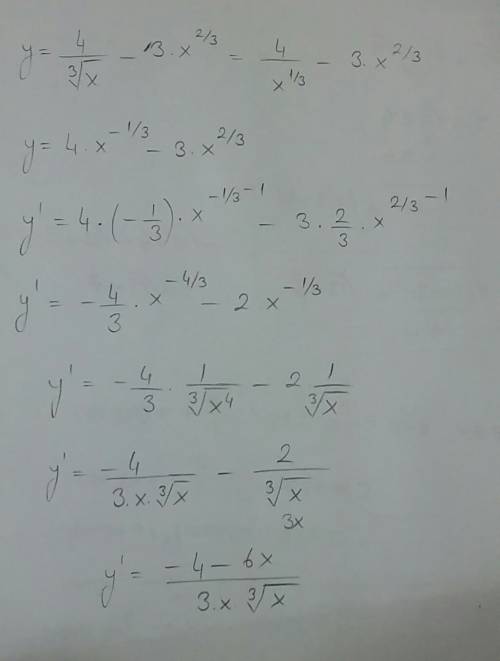 y = 4/∛x - 3·x^(2/3) = 4/x^(1/3) - 3·x^(2/3)
y = 4·x^(-1/3) - 3·x^(2/3)
y' = 4·(-1/3)·x^(-1/3-1) - 3·2/3·x^(2/3-1)
y' = -4/3·x^(-4/3) - 2x^(-1/3)
y' = -4/3·1/∛x⁴ - 2 1/∛x
y' = -4/(3.x.∛x) - 2/∛x
3x
y' = (-4-6x)/(3.x ∛x)